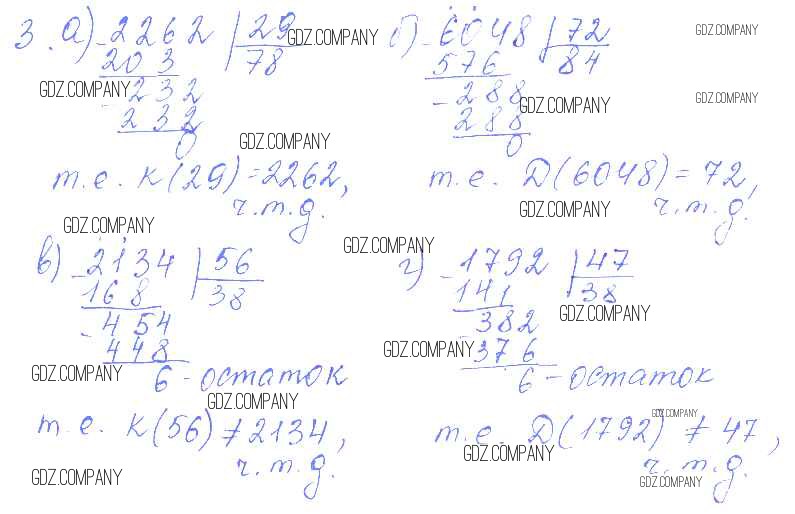 3. а) 2262 | 29 GDZ.COMPANY б) 6048 | 72 GDZ.COMPANY
203 78 576 84
GDZ.COMPANY 232 - 288 GDZ.COMPANY GDZ.COMPANY
232 288
0 GDZ.COMPANY 0
т.е. К(29) = 2262, т.е. Д(6048) = 72,
ч.т.д. GDZ.COMPANY ч.т.д.
GDZ.COMPANY GDZ.COMPANY
в) - 2134 | 56 г) - 1792 | 47
168 38 141 38
- 454 382 GDZ.COMPANY
448 GDZ.COMPANY 376
GDZ.COMPANY 6 - остаток 6 - остаток
GDZ.COMPANY GDZ.COMPANY
т.е. К(56) ≠ 2134, т.е. Д(1792) ≠ 47,
GDZ.COMPANY
ч.т.д. ч.т.д.
GDZ.COMPANY GDZ.COMPANY